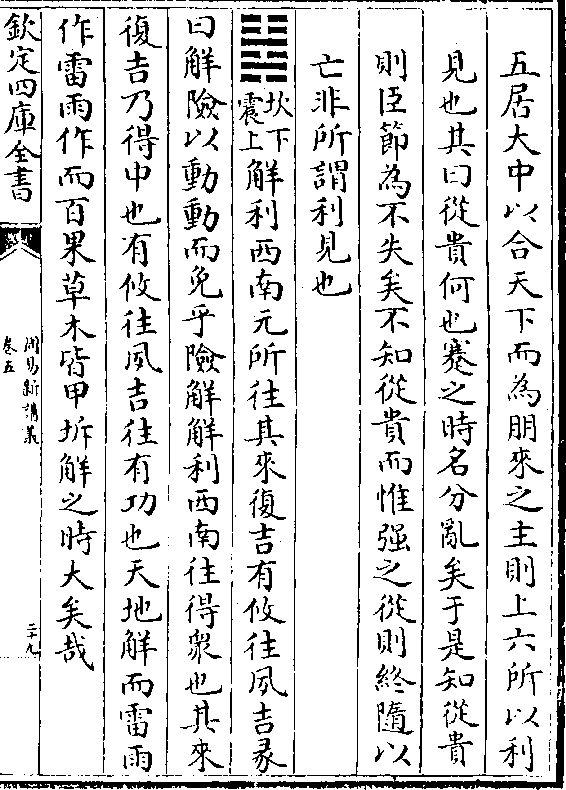 五居大中以合天下而為朋來之主則上六所以利
見也其曰從貴何也蹇之時名分亂矣于是知從貴
則臣節為不失矣不知從貴而惟强之從則終隨以
亡非所謂利見也
䷧坎下震上解利西南元所往其來復吉有攸往夙吉彖
曰解險以動動而免乎險解解利西南往得衆也其來
復吉乃得中也有攸往夙吉往有功也天地解而雷雨
作雷雨作而百果草木皆甲坼解之時大矣哉
欽定四庫全書
周易新講義
卷五
二十九